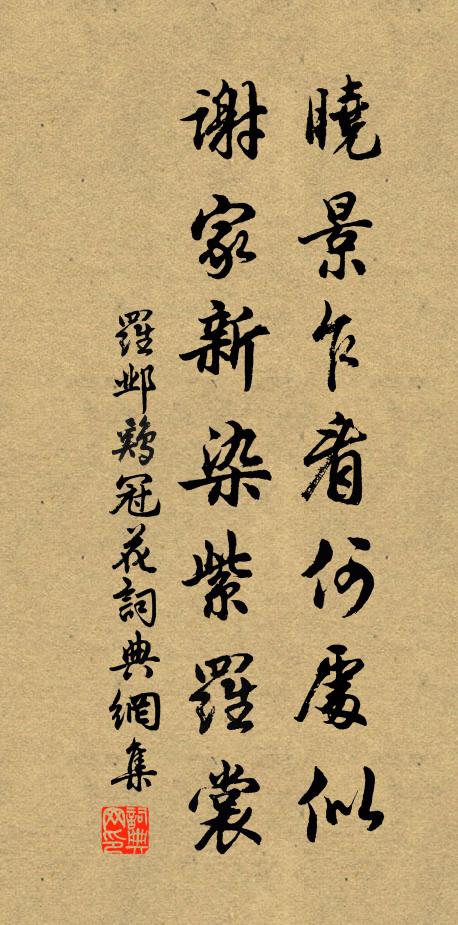 曉景乍看何處似
謝家新染紫羅裳
羅鄴鷄冠花詞典網集
詞典网印